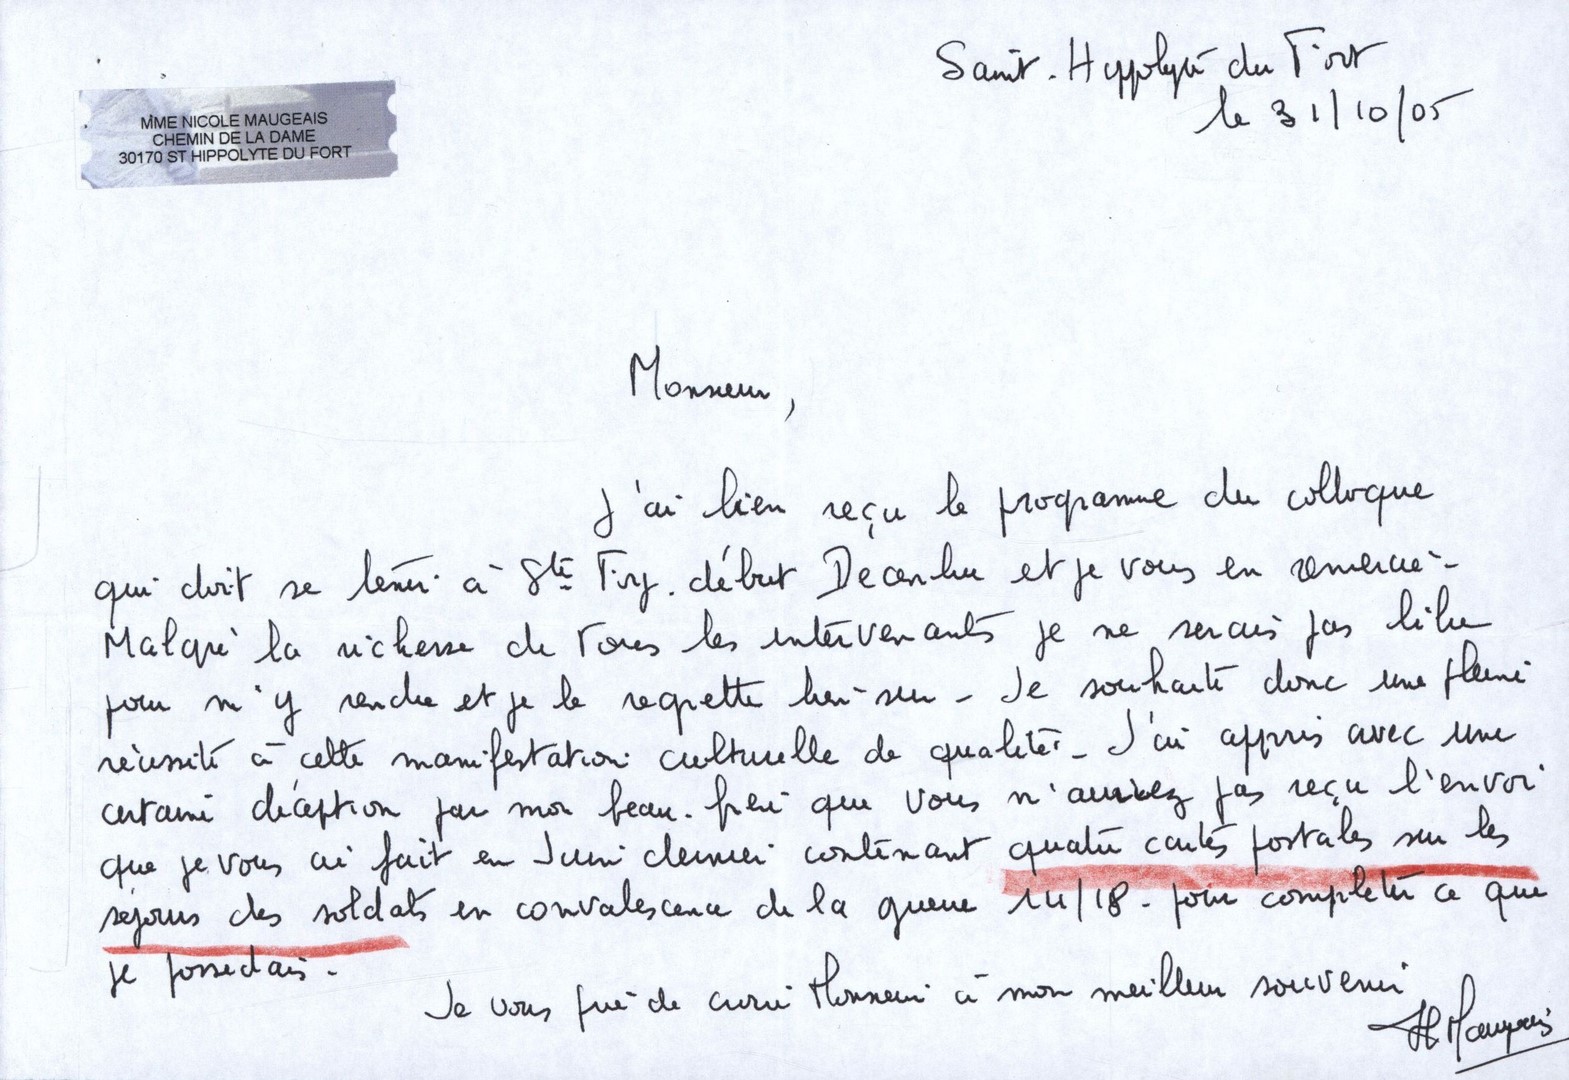 Saint-Hippolyte du Fort
le 31/10/05
MME NICOLE MAUGEAIS
CHEMIN DE LA DAME
30170 ST HIPPOLYTE DU FORT
Monsieur,
J'ai bien reçu le programme du colloque
qui doit se tenir à Ste Foy. début Decembre et je vous en remercie -
Malgré la richesse de tous les intervenants je ne serais pas libre
pour m'y rendre et je le regrette bien-sur - Je souhaite donc une pleine
réussite à cette manifestation culturelle de qualité - J'ai appris avec une
certaine déception par mon beau-frère que vous n'auriez pas reçu l'envoi
que je vous ai fait en Juin dernier contenant quatre cartes postales sur les
séjours des soldats en convalescence de la guerre 14/18 - pour completer ce que
je possedais -
Je vous prie de croire Monsieur à mon meilleur souvenir
Maugeais